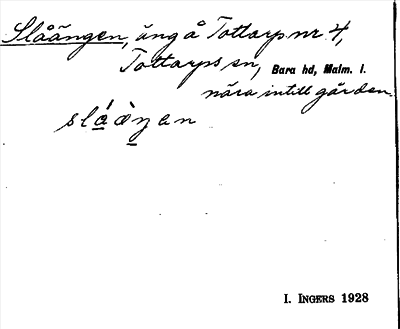 Slåängen, äng å Tottarp nr 4,
Tottarps sn, Bara hd, Malm. l.
nära intill gården.
slá̱àŋ̱en
I. INGERS 1928